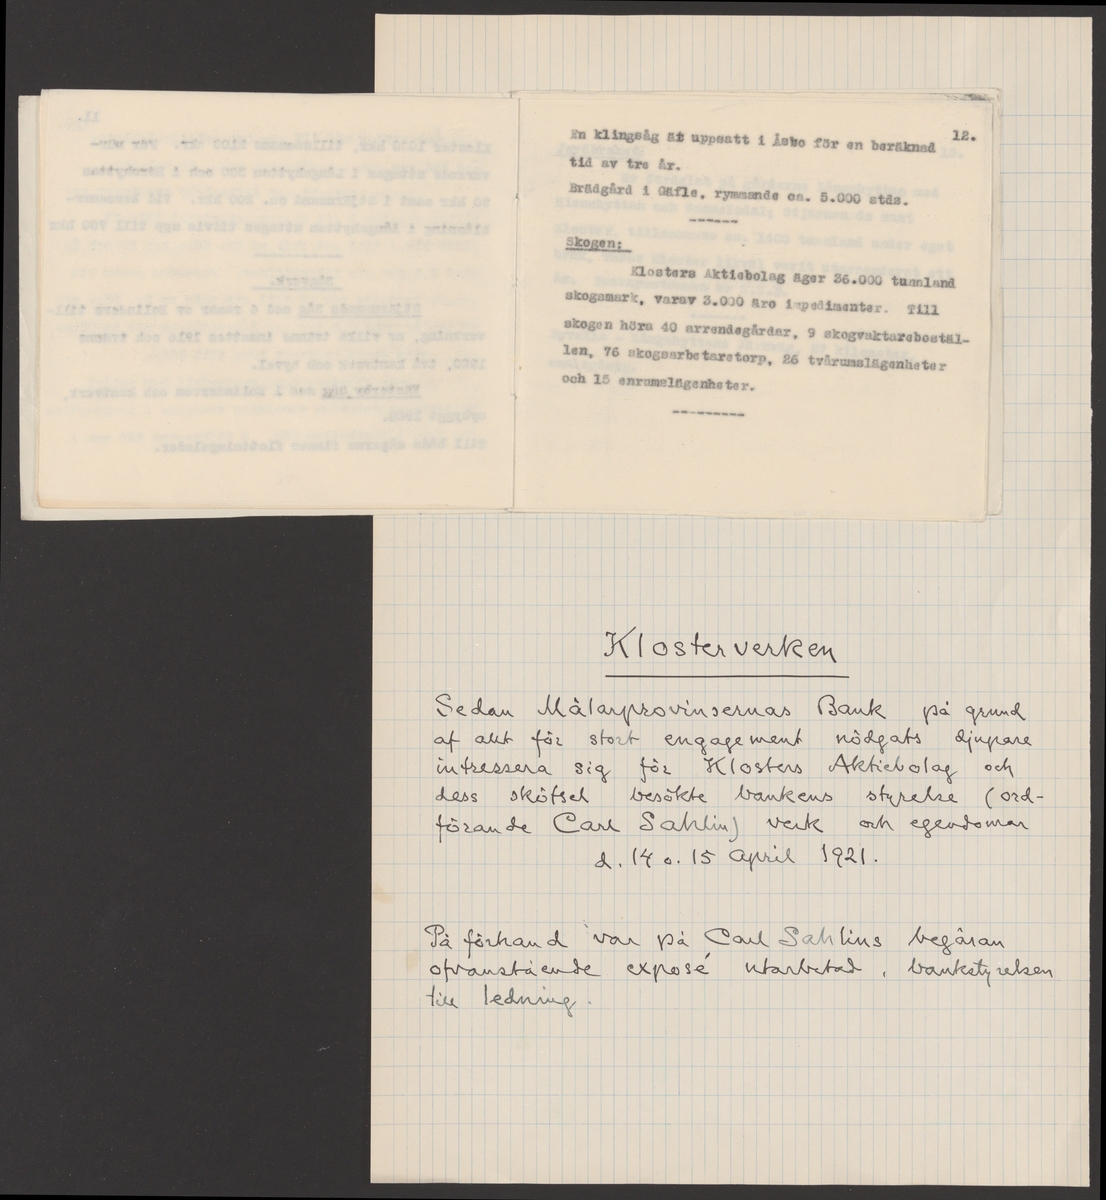 12.
En klingsåg är uppsatt i Åsbo för en beräknad
tid av tre år.
Brädgård i Gäfle, rymmande ca. 5.000 stds.
------
Skogen:
Klosters Aktiebolag äger 36.000 tunnland
skogsmark, varav 3.000 äro impedimenter. Till
skogen höra 40 arrendegårdar, 9 skogvaktarebostäl-
len, 76 skogsarbetaretorp, 26 tvårumslägenheter
och 15 enrumslägenheter.
---------
Klosterverken
Sedan Mälarprovinsernas Bank på grund
af allt för stort engagement nödgats djupare
intressera sig för Klosters Aktiebolag och
dess skötsel besökte bankens styrelse (ord-
förande Carl Sahlin) verk och egendomar
d. 14 o. 15 april 1921.
På förhand var på Carl Sahlins begäran
ofvanstående exposé utarbetad, bankstyrelsen
till ledning.